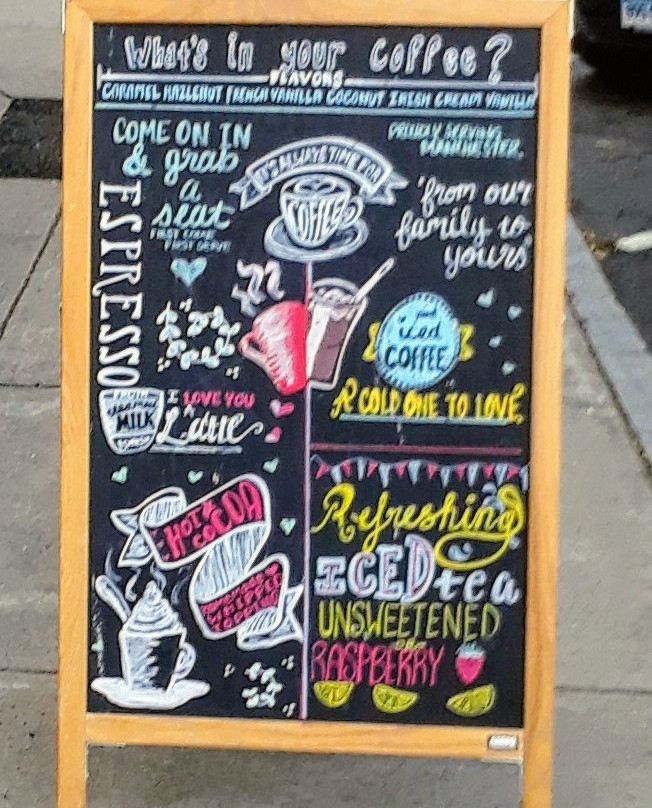 What's in your Coffee?
FLAVORS
CARAMEL HAZLENUT FRENCH VANILLA COCONUT IRISH CREAM VANILLA
COME ON IN
& grab
a
seat
FIRST COME
FIRST SERVE
ESPRESSO
IT'S ALWAYS TIME FOR
COFFEE
PROUDLY SERVING
MANCHESTER
"from our
family to
yours"
iced
COFFEE
A COLD ONE TO LOVE
steamed
MILK
I LOVE YOU
A
Latte
HOT
COCOA
HOMEMADE
WHIPPED
TOPPING
Refreshing
ICED tea
UNSWEETENED
or
RASPBERRY